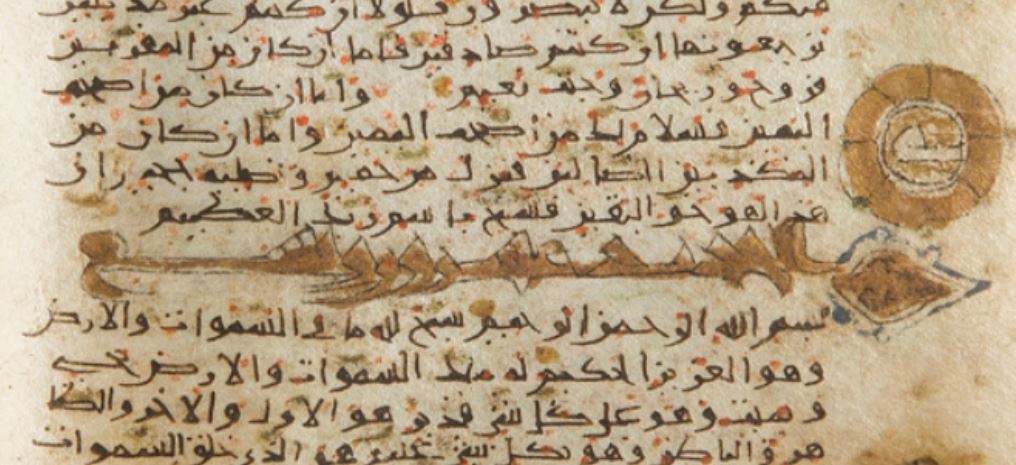 منكم ولكن لا تبصرون فلولا ان كنتم غير مدينين
ترجعونها ان كنتم صادقين فاما ان كان من المقربين
فروح وريحان وجنت نعيم واما ان كان من اصحب
اليمين فسلام لك من اصحب اليمين واما ان كان من
المكذبين الضالين فنزل من حميم وتصليه جحيم ان
هذا لهو حق اليقين فسبح باسم ربك العظيم
بسم الله الرحمن الرحيم سبح لله ما في السموات والارض
وهو العزيز الحكيم له ملك السموات والارض يحي
ويميت وهو على كل شي قدير هو الاول والاخر والظا
هر والباطن وهو بكل شي عليم هو الذي خلق السموات